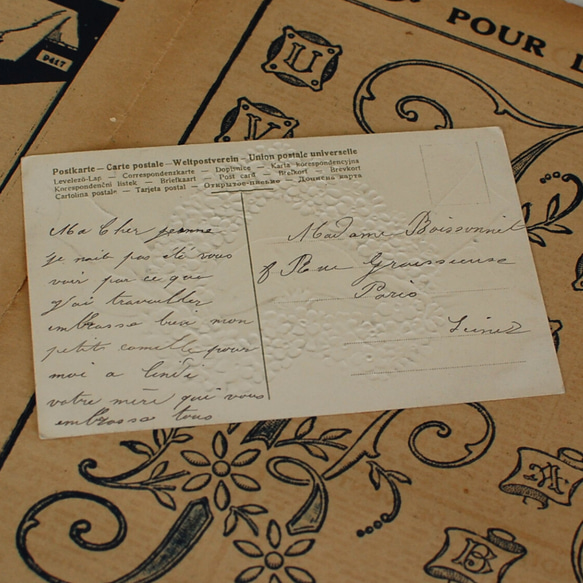 POUR
9417
U
Postkarte — Carte postale — Weltpostverein — Union postale universelle
Levelező-Lap — Correspondenzkarte — Dopisnice — Karta korespondencyjna
Korespondenční listek — Briefkaart — Post card — Brefkort — Brevkort
Cartolina postale — Tarjeta postal — Открытое письмо — Дописна карта
Ma Cher
je naib pas été vous
voir par ce que
J'ai travailler
embrassé bien mon
petits camille pour
moi a lindi
votre mère qui vous
embrasse tous
Madame Boissonnet
8 Rue
Paris
A
B